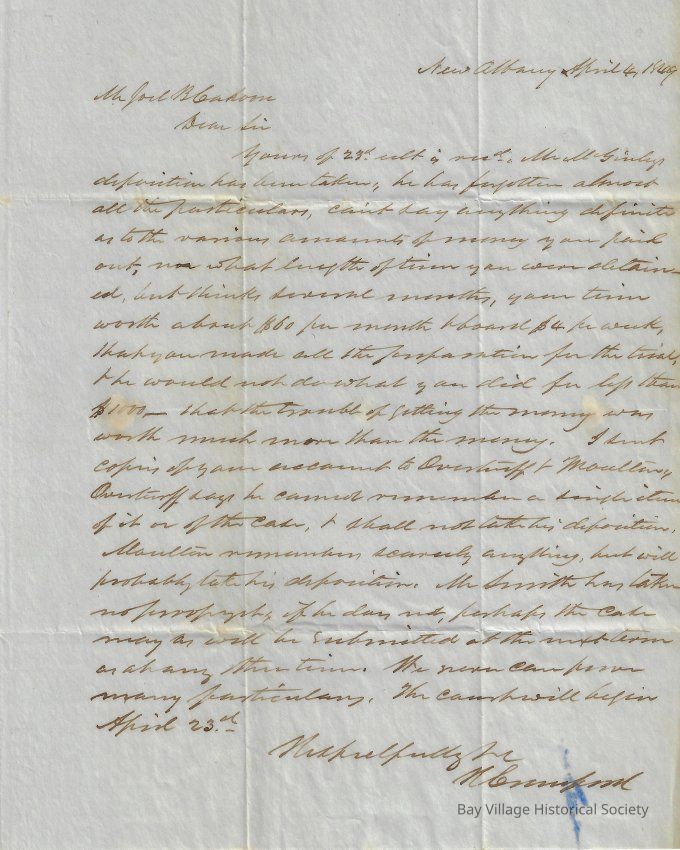 New Albany April 4, 1849
Mr Joel B Cahoon
Dear Sir
Yours of 23d ult is recd. Mr McGinleys
deposition has been taken, he has forgotten almost
all the particulars, cant say anything definite
as to the various amounts of money you paid
out, nor what length of time you were detain-
ed, but thinks several months, your time
worth about $60 per month & board $4 pr week,
that you made all the preparation for the trial,
& he would not do what you did for less than
$1000— that the trouble of getting the money was
worth much more than the money. I sent
copies of your account to Overturff & Moulton,
Overturff says he cannot remember a single item
of it or of the case, & shall not take his deposition.
Moulton remembers scarcely anything, but will
probably take his deposition. Mr Smith has taken
no proof yet, if he does not, perhaps the case
may as well be submitted at the next term
as at any other time. We never can prove
many particulars. The court will begin
April 23d
Respectfully
Crawford
Bay Village Historical Society